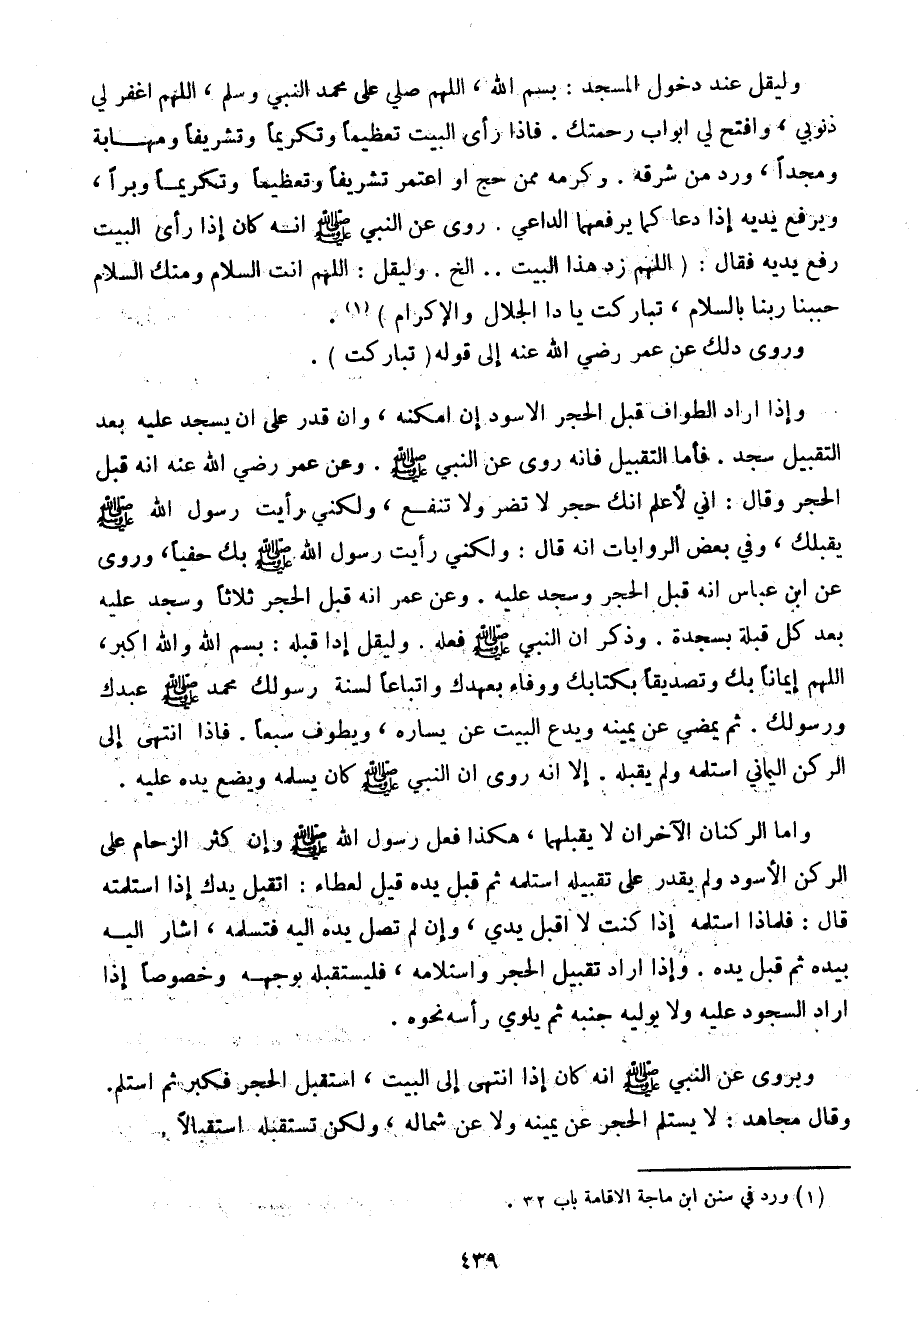 وليقل عند دخول المسجد : بسم الله ، اللهم صلي على محمد النبي وسلم ، اللهم اغفر لي
ذنوبي ، وافتح لي ابواب رحمتك . فاذا رأى البيت تعظيماً وتكريماً وتشريفاً ومهــابة
ومجداً ، ورد من شرقه . وكرمه ممن حج او اعتمر تشريفاً وتعظيماً وتكريمـاً وبراً ،
ويرفع يديه إذا دعا كما يرفعهما الداعي . روى عن النبي ﷺ انـه كان إذا رأى البيت
رفع يديه فقال : ( اللهم زد هذا البيت .. الخ . وليقل : اللهم انت السلام ومنك السلام
حببنا ربنا بالسلام ، تباركت يا دا الجلال والإكرام ) (١) .
وروى دلك عن عمر رضي الله عنه إلى قوله ( تباركت ) .
وإذا اراد الطواف قبل الحجر الاسود إن امكنه ، وان قدر على ان يسجد عليه بعد
التقبيل سجد . فأما التقبيل فانه روى عن النبي ﷺ . وعن عمر رضي الله عنه انه قبل
الحجر وقال : اني لأعلم انك حجر لا تضر ولا تنفـع ، ولكني رأيت رسول الله ﷺ
يقبلك ، وفي بعض الروايات انه قال : ولكني رأيت رسول الله ﷺ بك حفياً ، وروى
عن ابن عباس انه قبل الحجر وسجد عليه . وعن عمر انه قبل الحجر ثلاثاً وسجد عليه
بعد كل قبلة بسجدة . وذكر ان النبي ﷺ فعله . وليقل إدا قبله : بسم الله والله اكبر ،
اللهم إيماناً بك وتصديقاً بكتابك ووفاء بعهدك واتباعاً لسنة رسولك محمد ﷺ عبدك
ورسولك . ثم يمضي عن يمينه ويدع البيت عن يساره ، ويطوف سبعاً . فاذا انتهى إلى
الركن اليماني استلمه ولم يقبله . إلا انه روى ان النبي ﷺ كان يسلمه ويضع يده عليه .
واما الركنان الآخران لا يقبلهما ، هكذا فعل رسول الله ﷺ وإن كثر الزحام على
الركن الأسود ولم يقدر على تقبيله استلمه ثم قبل يده قيل لعطاء : اتقبل يدك إذا استلمته
قال : فلماذا استلمه إذا كنت لا اقبل يدي ، وإن لم تصل يده اليه فتسلمه ، اشار اليـه
بيده ثم قبل يده . وإذا اراد تقبيل الحجر واستلامه ، فليستقبله بوجهـه وخصوصاً إذا
اراد السجود عليه ولا يوليه جنبه ثم يلوي رأسه نحوه .
ويروى عن النبي ﷺ انه كان إذا انتهى إلى البيت ، استقبل الحجر فكبر ثم استلم.
وقال مجاهد : لا يستلم الحجر عن يمينه ولا عن شماله ، ولكن تستقبله استقبالاً .
(١) ورد في سنن ابن ماجة الاقامة باب ٣٢ .
٤٣٩